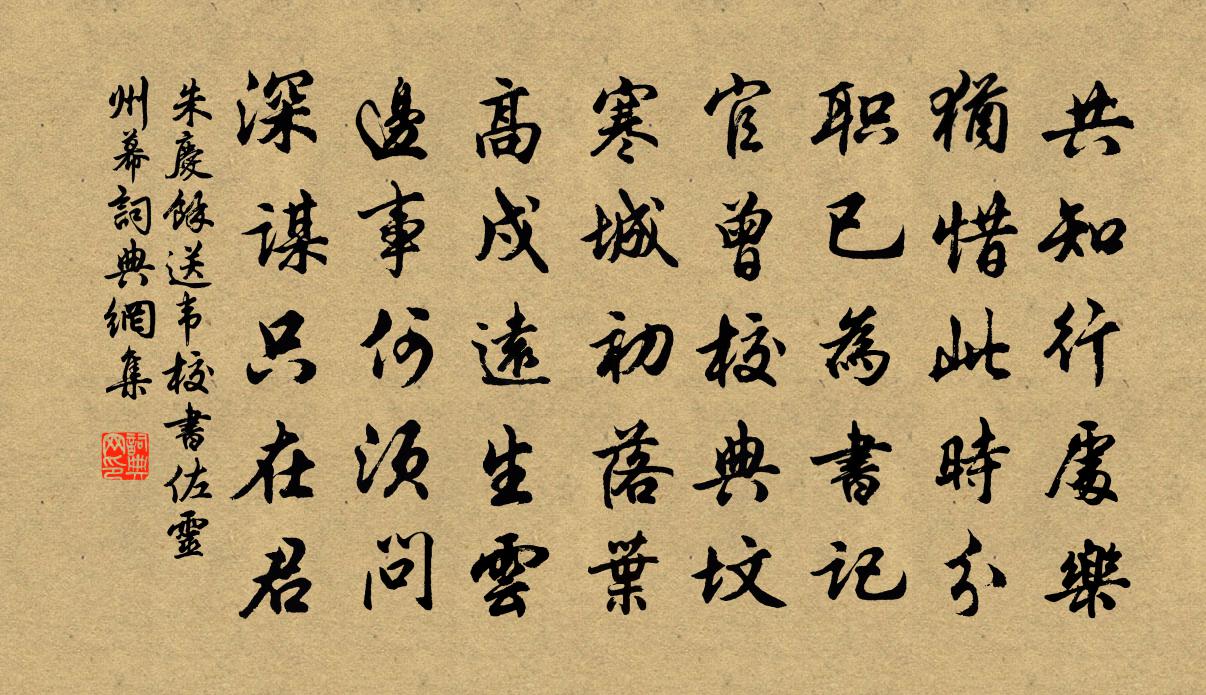 共知行處樂
猶惜此時分
职已為書記
官曾校典坟
寒城初落葉
高戍遠生雲
邊事何須問
深謀只在君
朱慶餘送韦校書佐靈
州幕詞典網集
詞典网印